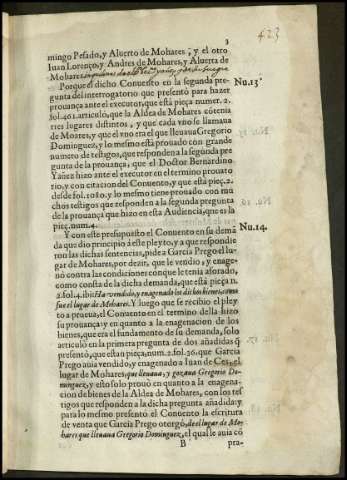 423
3
mingo Pesado, y Aluerto de Mohares; y el otro
Iuan Lorenço, y Andres de Mohares, y Aluerta de
Mohares
Porque el dicho Conuento en la segunda pre-
Nu.13
gunta del interrogatorio que presentò para hazer
prouança ante el executor, que està pieça numer. 2.
fol. 401. articulò, que la Aldea de Mohares cõtenia
tres lugares distintos, y que cada vno se llamaua
de Moares, y que el vno era el que lleuaua Gregorio
Dominguez, y lo mesmo està prouado con grande
numero de testigos, que responden a la segũda pre
gunta de la prouança, que el Doctor Bernardino
Yañez hizo ante el executor en el termino prouato
rio, y con citacion del Conuento, y que està pieç. 2.
desde fol. 1080. y lo mesmo tiene prouado con mu
chos testigos que responden a la segunda pregunta
de la prouança que hizo en esta Audiencia, que es la
pieç. num. 4.
Y con este presupuesto el Conuento en su demã
Nu.14.
da que dio principio à este pleyto, y a que respondie
ron las dichas sentencias, pide a Garcia Prego el lu-
gar de Mohares, por dezir, que le vendio, y enage-
nò contra las condiciones con que le tenia aforado,
como consta de la dicha demanda, que està pieça n.
2. fol. 4. ibi: Ha vendido, y enagenado los dichos bienes, como
fue el lugar de Mohares. Y luego que se recibio el pley
to a prueua, el Conuento en el termino della hizo
su prouança: y en quanto a la enagenacion de los
bienes, que era el fundamento de su demanda, solo
articulò en la primera pregunta de dos añadidas q̃
presentò, que estan pieça, num. 2. fol. 36. que Garcia
Prego auia vendido, y enagenado a Iuan de Ces, el
lugar de Mohares, que lleuaua, y gozaua Gregorio Do-
minguez, y esto solo prouò en quanto a la enagena-
cion de bienes de la Aldea de Mohares, con los tes-
tigos que responden a la dicha pregunta añadida: y
para lo mesmo presentò el Conuento la escritura
de venta que Garcia Prego otorgò, de el lugar de Mo-
hares que lleuaua Gregorio Dominguez, el qual le auia cõ
B
pra-